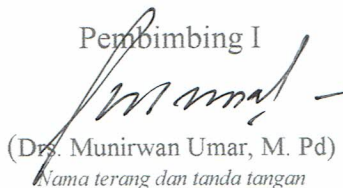 Pembimbing I
(Drs. Munirwan Umar, M. Pd)
Nama terang dan tanda tangan